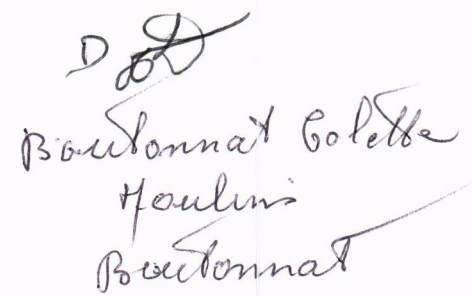 D
Boutonnat Colette
Moulins
Boutonnat